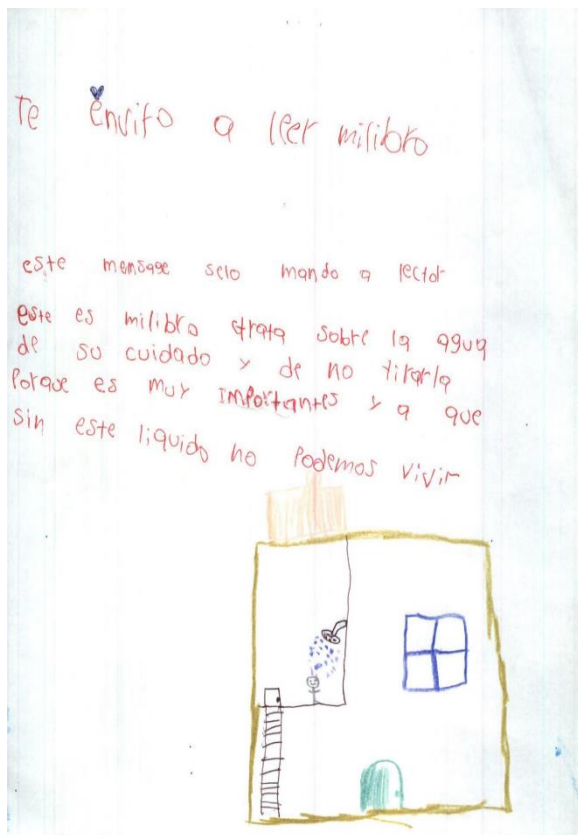 Te envito a leer milibro
este mensage selo mando a lector
este es milibro etrata sobre la agua
de su cuidado y de no tirarla
Porque es muy importantes y a que
sin este liquido no Podemos vivir